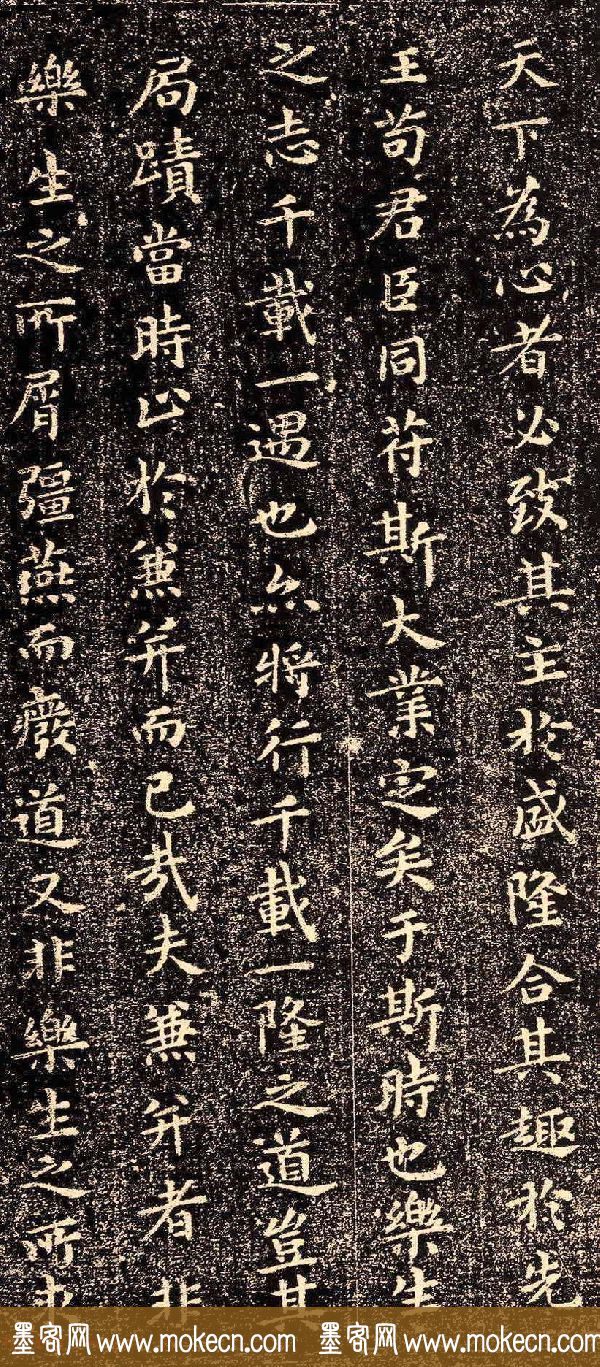 天下為心者必致其主於盛隆合其趣於先
王苟君臣同苻斯大業定矣于斯時也樂生
之志千載一遇也亦將行千載一隆之道豈其
局蹟當時止於兼并而已哉夫兼并者非
樂生之所屑彊燕而癈道又非樂生之所
墨客网 www.mokecn.com 墨客网 www.mokecn.com